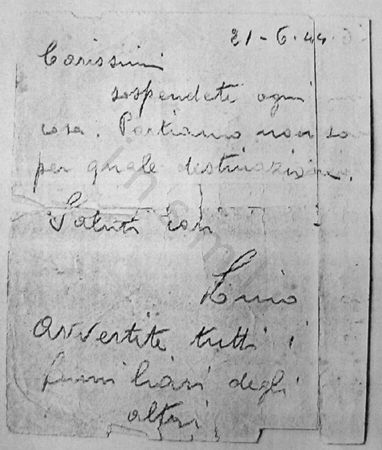 21-6-44
Carissimi
sospendete ogni
cosa. Partiamo non so
per quale destinazione.
Saluti cari
avvertite tutti i
familiari degli
altri